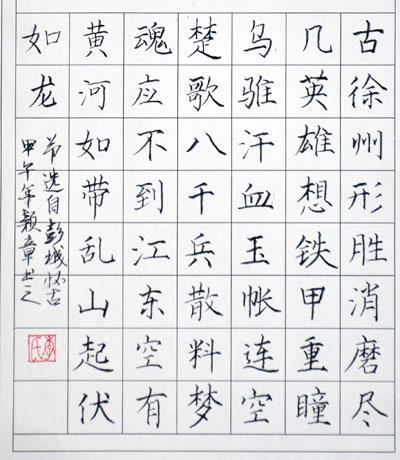 古徐州形胜消磨尽
几英雄想铁甲重瞳
乌骓汗血玉帐连空
楚歌八千兵散料梦
魂应不到江东空有
黄河如带乱山起伏
如龙
节选自彭城怀古
甲午年章书之